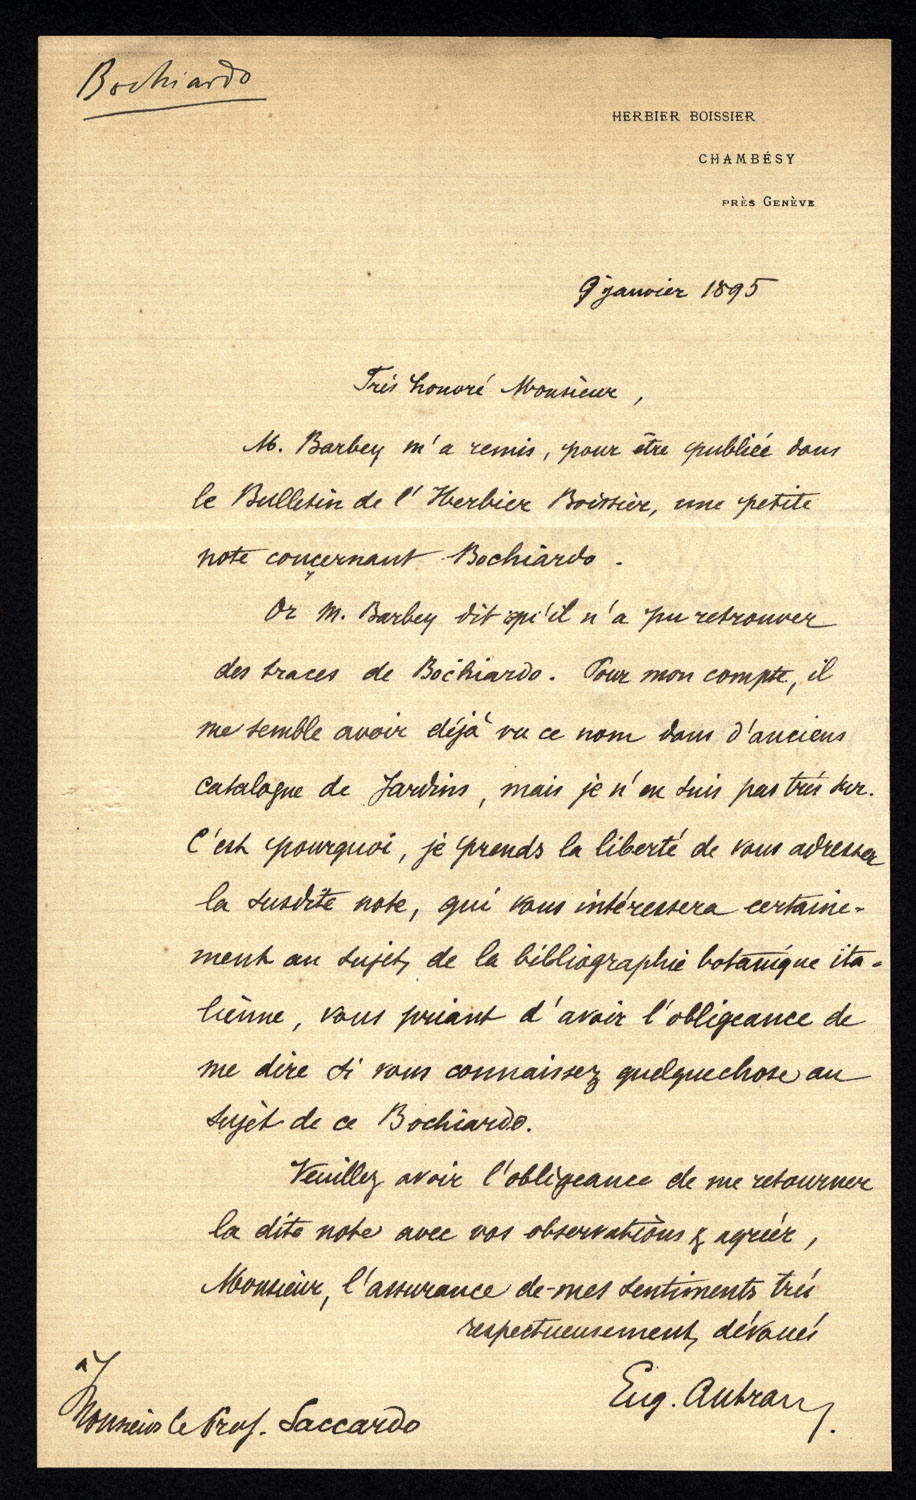 Bochiardo
HERBIER BOISSIER
CHAMBÉSY
PRÈS GENÈVE
9 janvier 1895
Très honoré Monsieur,
M. Barbey m'a remis, pour être publiée dans
le Bulletin de l'Herbier Boissier, une petite
note concernant Bochiardo.
Or M. Barbey dit qu'il n'a pu retrouver
des traces de Bochiardo. Pour mon compte, il
me semble avoir déjà vu ce nom dans d'anciens
catalogue de Jardins, mais je n'en suis pas très sur.
C'est pourquoi, je prends la liberté de vous adresser
la susdite note, qui vous intéressera certaine-
ment au sujet de la bibliographie botanique ita-
lienne, vous priant d'avoir l'obligeance de
me dire si vous connaissez quelquechose au
sujet de ce Bochiardo.
Veuillez avoir l'obligeance de me retourner
la dite note avec vos observations & agréer,
Monsieur, l'assurance de mes sentiments très
respectueusement dévoués
Eug. Autran.
à
Monsieur le Prof. Saccardo